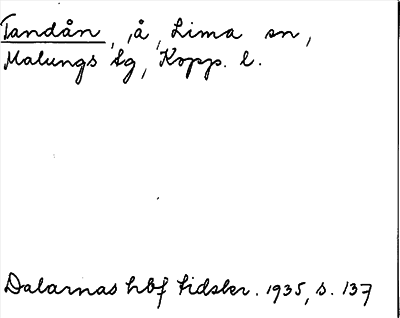 Tandån, å, Lima sn,
Malungs tg, Kopp. l.
Dalarnas hbf tidskr. 1935, s. 137